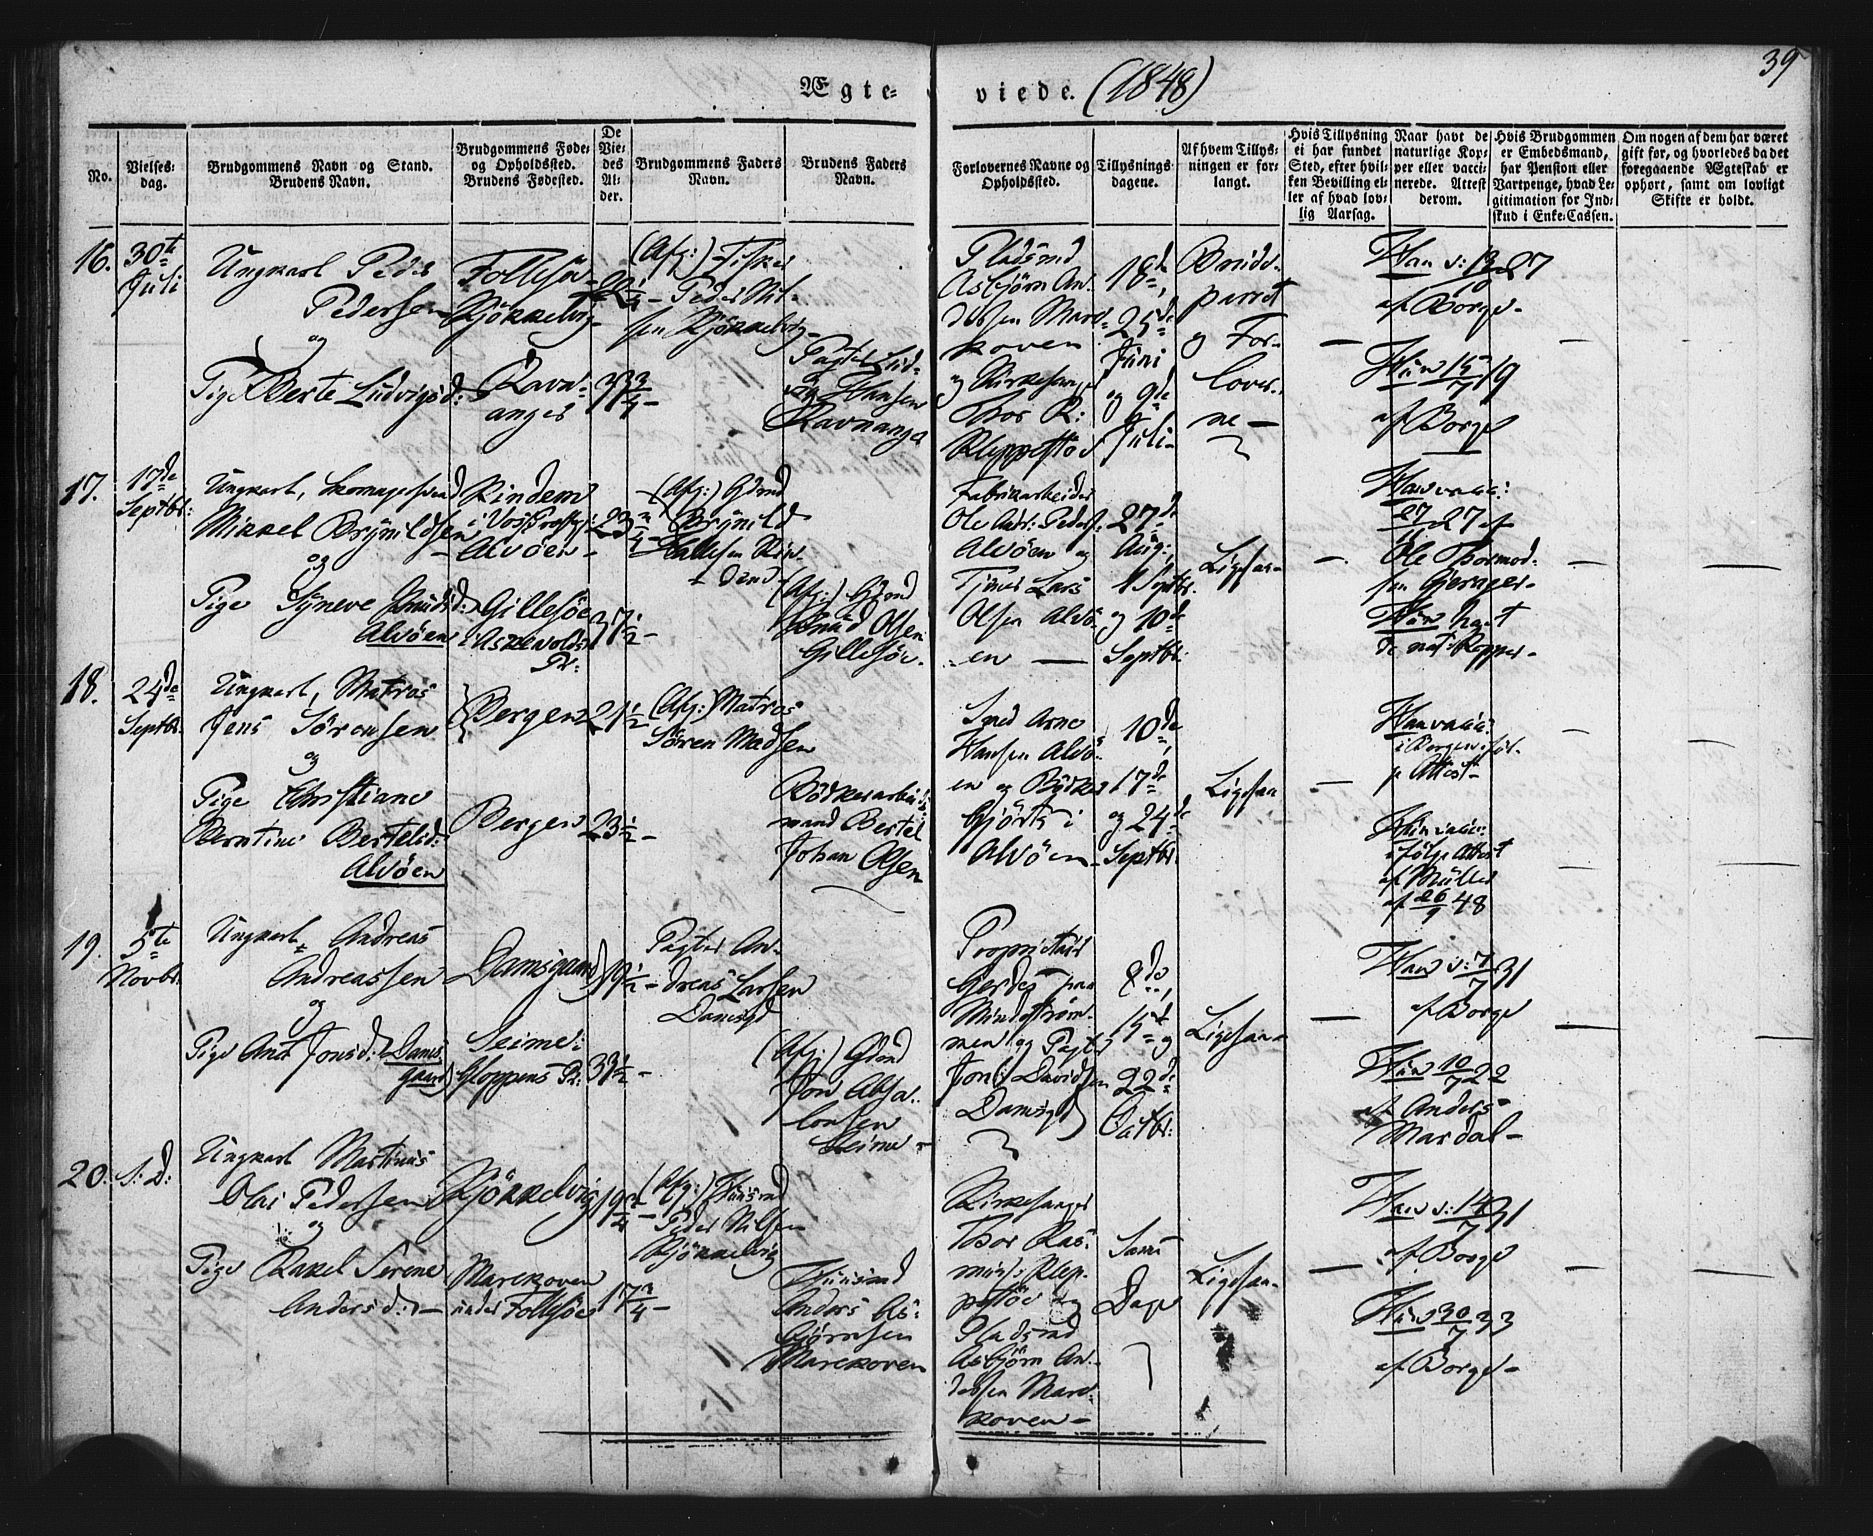 39
Ægte- viede. (1848)
No.
Vielses-
dag.
Brudgommens Navn og Stand.
Brudens Navn.
Brudgommens Føde-
og Opholdssted.
Brudens Fødested.
De
Vie-
des
Al-
der.
Brudgommens Faders
Navn.
Brudens Faders
Navn.
Forlovernes Navne og
Opholdssted.
Tillysnings-
dagene.
Af hvem Tillys-
ningen er for-
langt.
Hvis Tillysning
ei har fundet
Sted, efter hvil-
ken Bevilling el-
ler af hvad lov-
lig Aarsag.
Naar havt de
naturlige Kop-
per eller vacci-
nerede. Attest
derom.
Hvis Brudgommen
er Embedsmand,
har Pension eller
Vartpenge, hvad Le-
gitimation for Ind-
skud i Enke-Cassen.
Om nogen af dem har været
gift før, og hvorledes da det
foregaaende Ægteskab er
ophørt, samt om lovligt
Skifte er holdt.
16.
30te
Juli
Ungkarl Peder
Pedersen
og
Pige Berte Ludvigsd:
Follesøe
Kjøkkelvig
Ravn-
anger
22 1/4
33 3/4
(Afg:) Fisker
Peder Nil-
sen Kjøkkelvig
Pagter Lud-
vig Hansen
Ravnanger
Pladsmd
Asbjørn An-
dersen Mare-
koven
og Kirkesanger
Thor R:
Kleppestøe
18de,
25de
Juni
og 9de
Juli
Brude-
parret
og For-
lover-
ne
Han v: 27
af Borge
Hun 19
af Borge
17.
17de
Septbr:
Ungkarl,
Mikkel Brynildsen
og
Pige Syneve Knudsd:
Alvøen
Rindem
i Vos Præstgj:
Alvøen
Gillesøe
i Askevolds
Pr:
23 3/4
37 1/2
(Afg:) Gdmd
Brynild
Kallesen Rin-
dem
(Afg:) Gdmd
Knud Olsen
Gillesøe
Fabrikarbeider
Ole Andr: Peders:
Alvøen og
Tjener Lars
Olsen Alvø-
en
27de
Aug:
Septbr:
og 10de
Septbr:
Ligesaa
Han vacc:
27 af
Ole Thormod-
sen Gjerager
Hun havt
de nat: Kopper
18.
24de
Septbr:
Ungkarl, Matros
Jens Sørensen
og
Pige Christiane
Berntine Bertelsd:
Alvøen
Bergen
Bergen
21 1/2
23 1/2
(Afg:) Matros
Søren Madsen
Bødkerarbeids-
mand Bertel
Johan Olsen
Smed Arne
Hansen Alvø-
en og Bødker
Gjørts i
Alvøen
10de,
17de
og 24de
Septbr:
Ligesaa
Han vacc:
i Bergen iføl-
ge Attest
Hun vacc:
ifølge Attest
af Müller
af 26/9 48
19.
5te
Novbr:
Ungkarl Andreas
Andreassen
og
Pige Ana Jonsd: Dams-
gaard
Damsgaard
Seime:
Gloppens Pr:
19 1/2
33 1/2
Pagter An-
dreas Larsen
Damsgd
(Afg:) Gdmd
Jon Absa-
lonsen
Seime
Proprietair
Gerdes paa
Mindestrøm-
men og Pagter
Jons Davidsen
Damsgd
8de,
15de og
22de
Octbr:
Ligesaa
Han v: 7/7 31
af Borge
Hun 10/7 22
af Anders
Mardal
20.
S: D:
Ungkarl Martinus
Olai Pedersen
og
Pige Rakel Serene
Andersd:
Kjøkkelvig
Marekoven
under Follesøe
19 3/4
17 3/4
(Afg:) Huusmd
Peder Nilsen
Kjøkkelvig
Huusmd
Anders As-
bjørnsen
Marekoven
Kirkesanger
Thor Ras-
muss: Klep-
pestøe og
Pladsmd
Asbjørn An-
dersen Mare-
koven
Samme
Dage
Ligesaa
Han v: 14/7 31
af Borge
Hun 30/7 33
af Borge